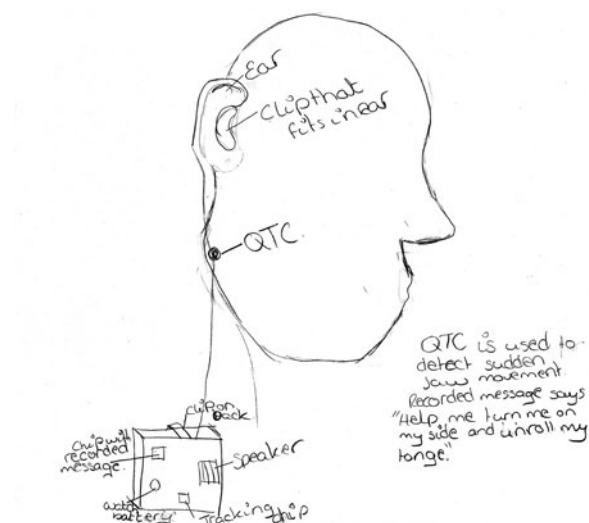 Ear
Clip that
fits in ear
QTC
QTC is used to
detect sudden
jaw movement.
Recorded message says
"Help me turn me on
my side and unroll my
tonge."
clip on
back
Chip with
recorded
message.
speaker
battery
Tracking chip